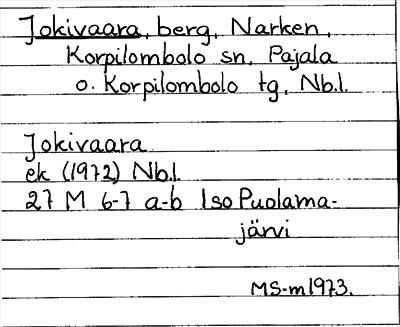 Jokivaara, berg, Narken,
Korpilombolo sn, Pajala
o. Korpilombolo tg, Nb.l.
Jokivaara
ek (1972) Nb.l
27 M 6-7 a-b Iso Puolama-
järvi
MS-m 1973.